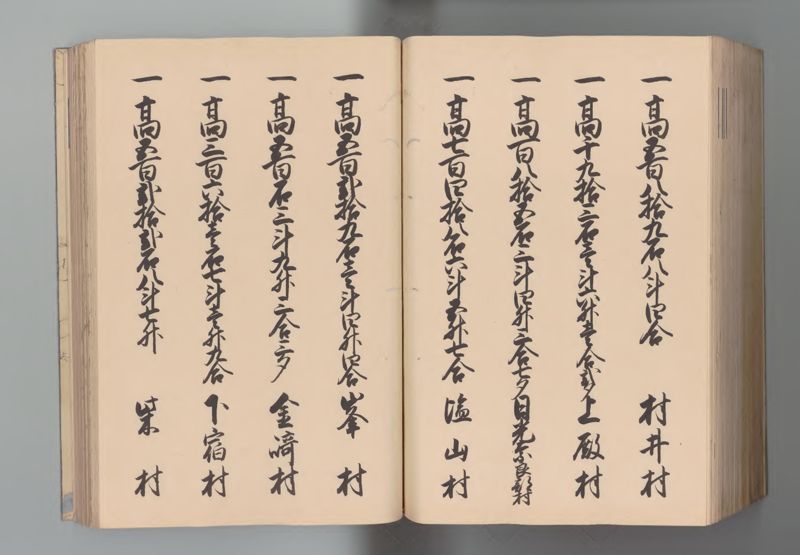 一 高五百八拾九石八斗四合 村井村
一 高千九拾二石三斗六升壱合弐夕 上殿村
一 高百八拾五石二斗四升二合七夕 日光奈良部村
一 高七百四拾八石六斗五升七合 塩山村
一 高五百弐拾九石三斗四升四合 峯村
一 高五百石三斗九升二合二夕 金崎村
一 高三百六拾壱石七斗壱升九合 下宿村
一 高五百弐拾弐石八斗七升 柴村